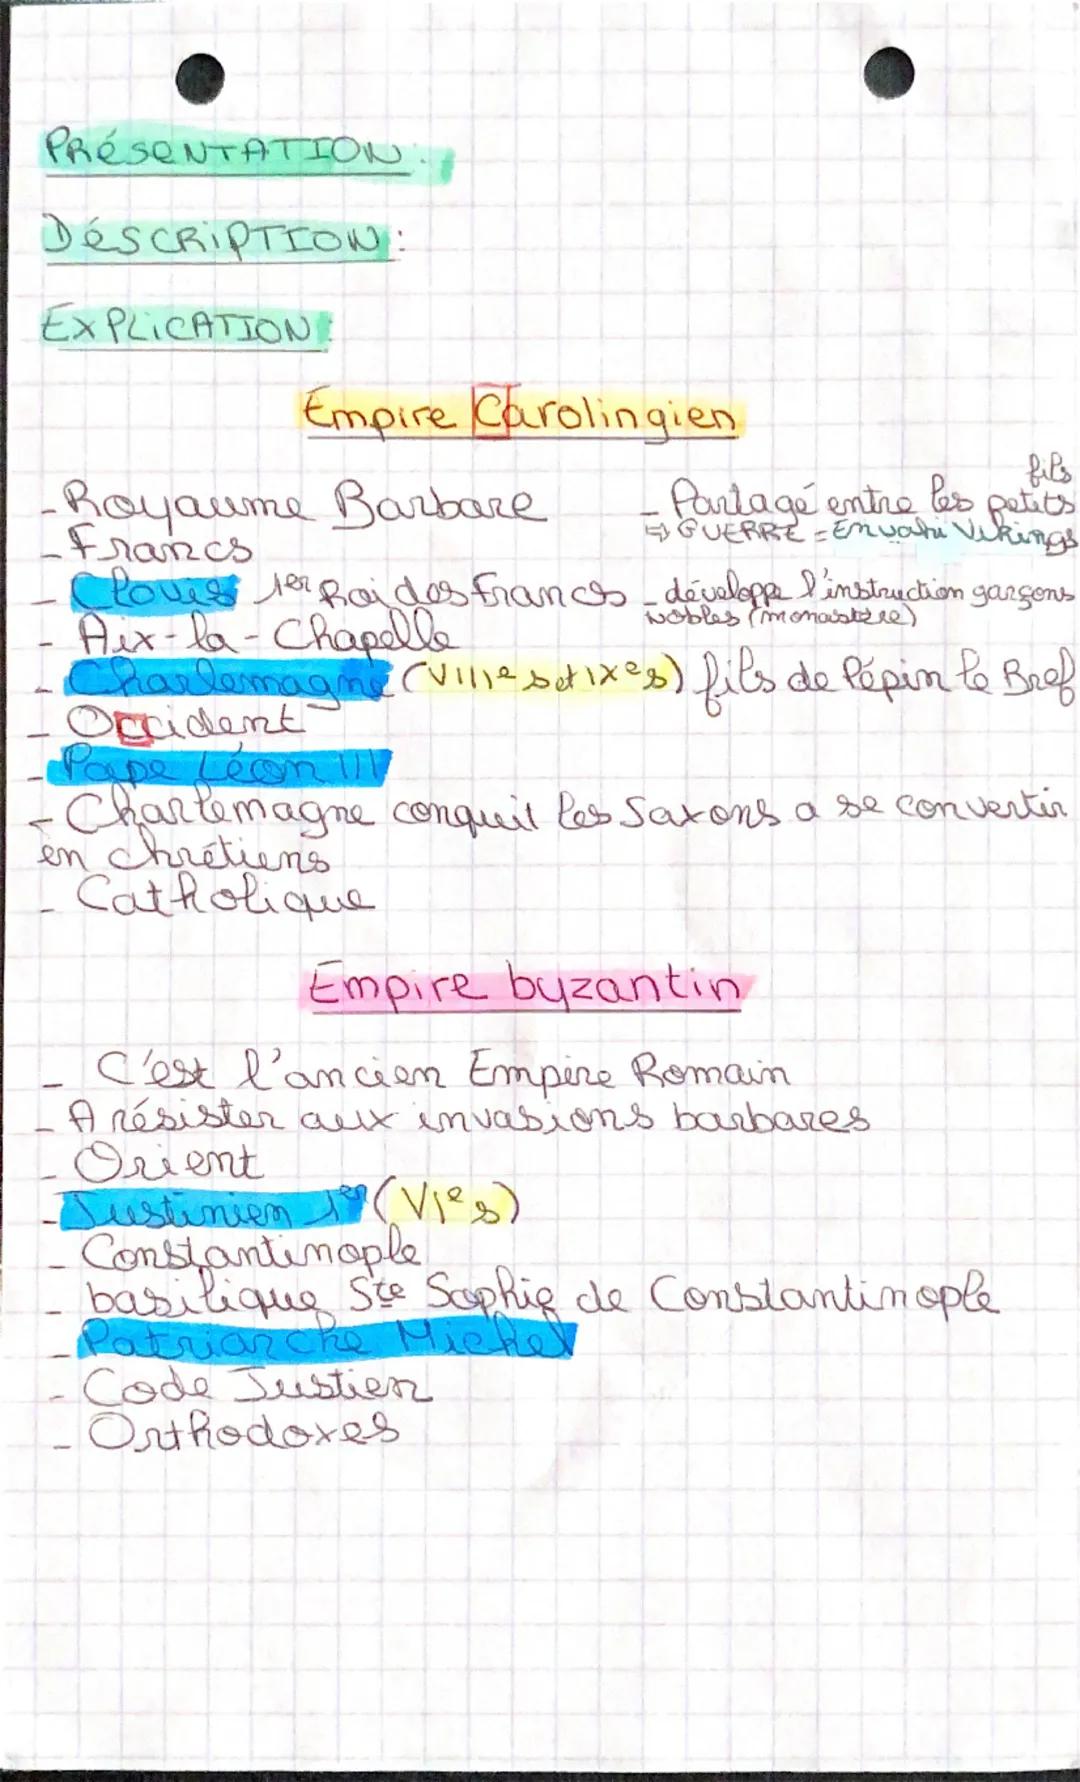 PRÉSENTATION:
DÉSCRIPTION:
EXPLICATION:
Empire Carolingien
- Royaume Barbare
- Francs
- Clovis 1er Roi des Francs
- Aix-la-Chapelle
- Partagé entre les petits fils
⇒ GUERRE = Envahi Vikings
- développe l'instruction garçons
nobles (monastère)
- Charlemagne (VIIIe s et IXe s) fils de Pépin le Bref
- Occident
- Pape Léon III
- Charlemagne conquit les Saxons a se convertir
en chrétiens
- Catholique
Empire byzantin
- C'est l'ancien Empire Romain
- A résister aux invasions barbares
- Orient
- Justinien 1er (VIe s)
- Constantinople
- basilique Ste Sophie de Constantinople
- Patriarche Michel
- Code Justien
- Orthodoxes